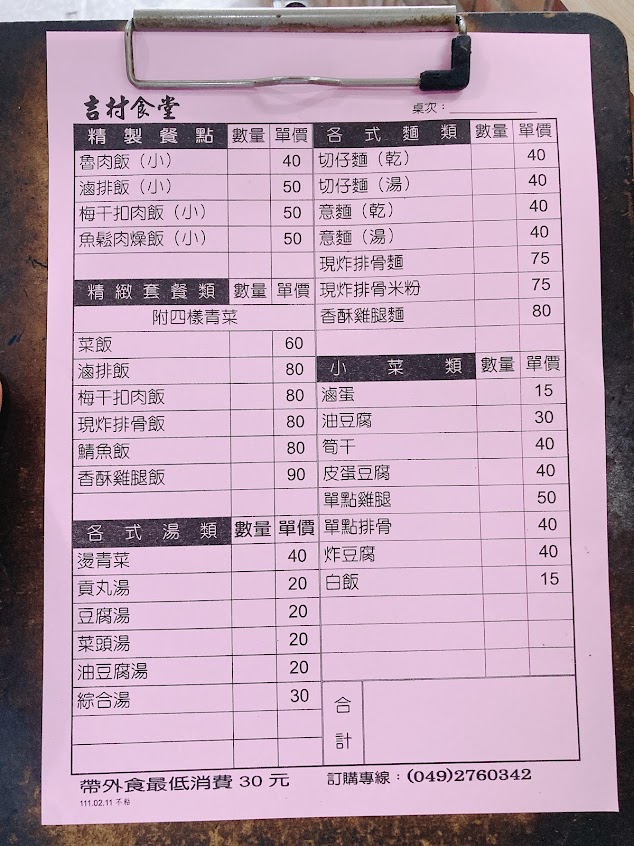 吉村食堂
桌次：
精製餐點 數量 單價
魯肉飯（小） 40
滷排飯（小） 50
梅干扣肉飯（小） 50
魚鬆肉燥飯（小） 50
精緻套餐類 數量 單價
附四樣青菜
菜飯 60
滷排飯 80
梅干扣肉飯 80
現炸排骨飯 80
鯖魚飯 80
香酥雞腿飯 90
各式湯類 數量 單價
燙青菜 40
貢丸湯 20
豆腐湯 20
菜頭湯 20
油豆腐湯 20
綜合湯 30
各式麵類 數量 單價
切仔麵（乾） 40
切仔麵（湯） 40
意麵（乾） 40
意麵（湯） 40
現炸排骨麵 75
現炸排骨米粉 75
香酥雞腿麵 80
小菜類 數量 單價
滷蛋 15
油豆腐 30
筍干 40
皮蛋豆腐 40
單點雞腿 50
單點排骨 40
炸豆腐 40
白飯 15
合計
帶外食最低消費 30 元
訂購專線：(049)2760342
111.02.11